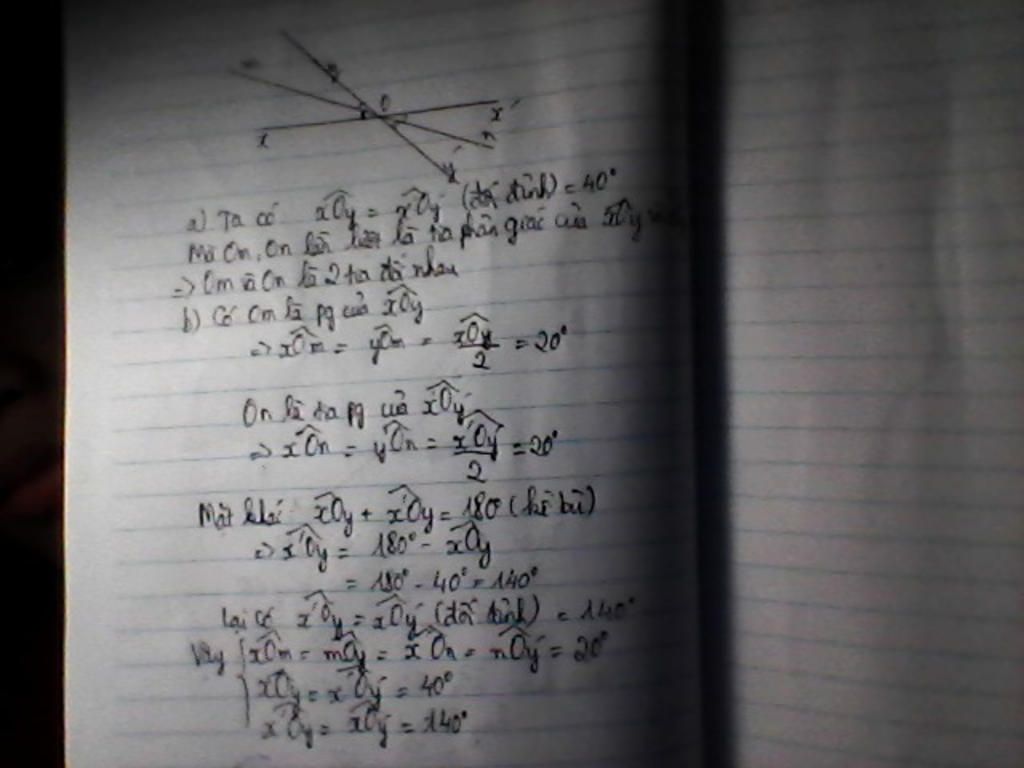 m
y
O
x
x'
n
y'
a) Ta có xOy = x'Oy' (đối đỉnh) = 40°
Mà Om, On lần lượt là tia phân giác của xOy
=> Om và On là 2 tia đối nhau
b) Có Om là pg của xOy
=> xOm = yOm = xOy/2 = 20°
On là tia pg của x'Oy'
=> x'On = y'On = x'Oy'/2 = 20°
Mặt khác xOy + x'Oy = 180° (kề bù)
=> x'Oy = 180° - xOy
= 180° - 40° = 140°
Lại có x'Oy = xOy' (đối đỉnh) = 140°
Vậy xOm = mOy = x'On = nOy' = 20°
xOy = x'Oy' = 40°
x'Oy = xOy' = 140°